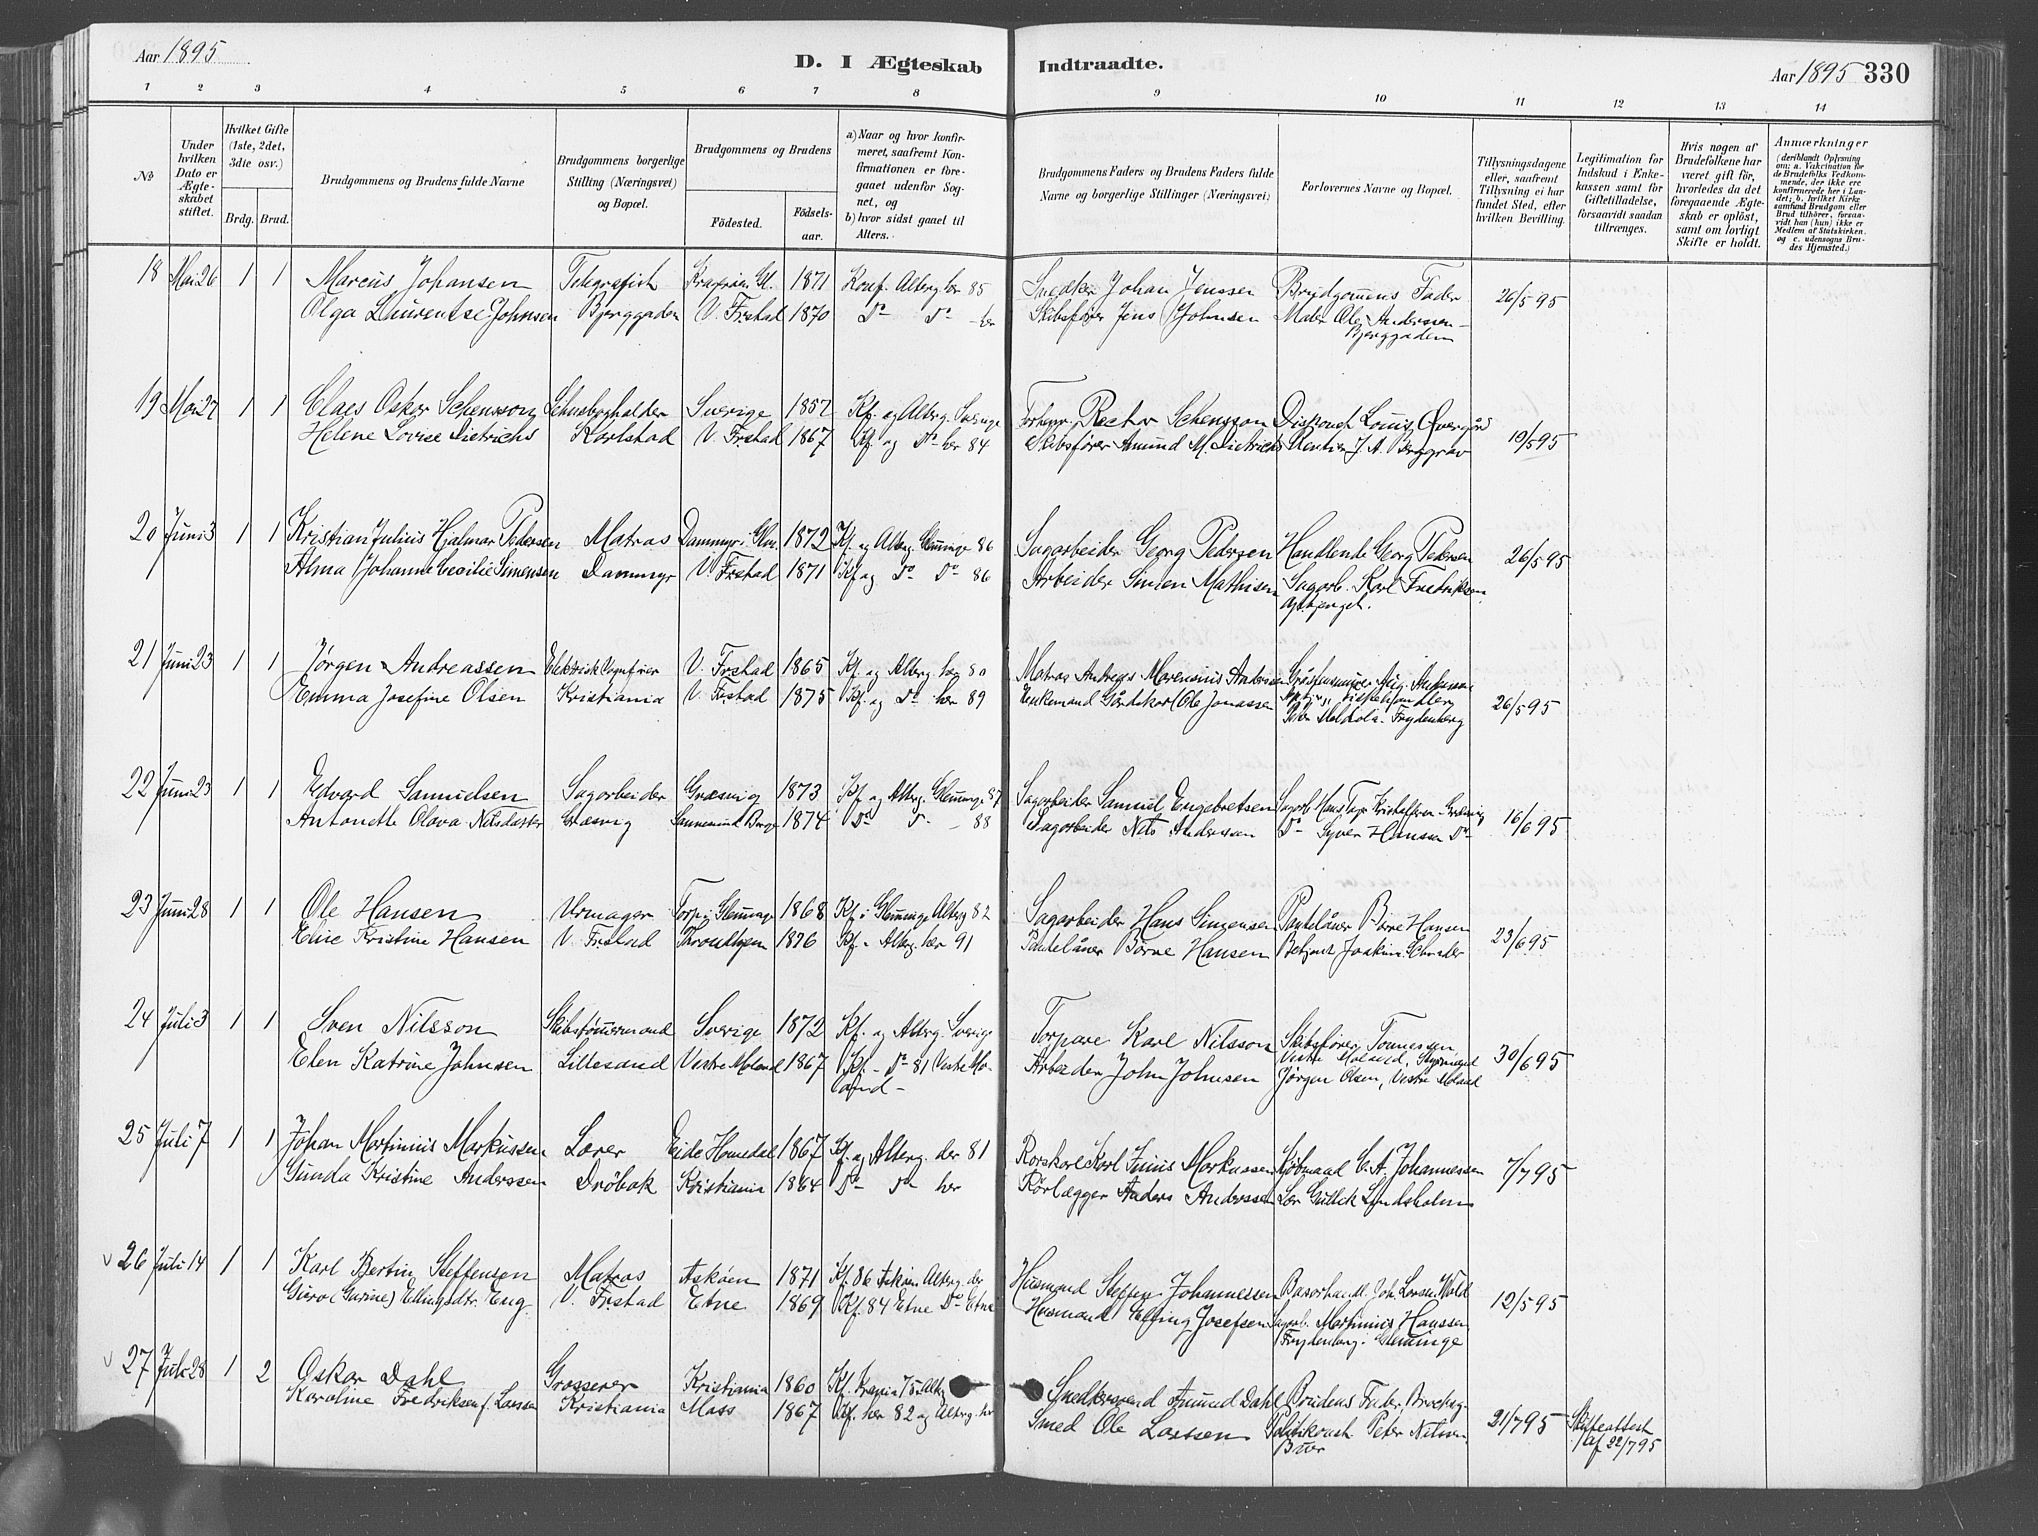 Aar 1895
D. I Ægteskab Indtraadte.
Aar 1895 330
1 2 3 4 5 6 7 8 9 10 11 12 13 14
No
Under hvilken Dato er Ægteskabet stiftet.
Hvilket Gifte (1ste, 2det, 3die osv.)
Brdg. Brud.
Brudgommens og Brudens fulde Navne
Brudgommens borgerlige Stilling (Næringsvei) og Bopæl.
Brudgommens og Brudens
Födested. Födselsaar.
a) Naar og hvor konfirmeret, saafremt Konfirmationen er foregaaet udenfor Sognet, og
b) hvor sidst gaaet til Alters.
Brudgommens Faders og Brudens Faders fulde Navne og borgerlige Stillinger (Næringsvei)
Forlovernes Navne og Bopæl.
Tillysningsdagene eller, saafremt Tillysning ei har fundet Sted, efter hvilken Bevilling.
Legitimation for Indskud i Enkekassen samt for Giftetilladelse, forsaavidt saadan tiltrænges.
Hvis nogen af Brudefolkene har været gift för, hvorledes da det foregaaende Ægteskab er oplöst, samt om lovligt Skifte er holdt.
Anmærkninger
(deriblandt Oplysning om: a. Vakcination for de Brudefolks Vedkommende, der ikke ere konfirmerede her i Landet; b. hvilket Kirkesamfund Brudgom eller Brud tilhörer, forsaavidt han (hun) ikke er Medlem af Statskirken, og c. udensogns Brudes Hjemsted.)
18 Mai 26 1 1 Marcus Johansen Telegrafist Kragerø 1871 Konf. Alterg. her 85 Snedker Johan Jenssen Brudgomens Fader 26/5 95
Olga Laurentse Johnsen Bjerggaden V. Frstad 1870 Do Do her Skibsfører Jens Johnsen Maler Ole Anderssen
Bjerggaden
19 Mai 27 1 1 Claes Oskar Schensson Karlstad Sverige 1857 Kf. og Alterg. Sverige Rector Schensson Louis Øvergård 19/5 95
Helene Lovise Dietrichs V. Frstad 1867 Kf. og Do her 84 Skibsfører Amund M. Dietrichs Rentier J. A. Berggrav
20 Juni 3 1 1 Kristian Julius Hjalmar Pedersen Matros Dammyr i Glem. 1872 Kf. og Alterg. Glemminge 86 Sagarbeider Georg Pedersen Handlende Georg Pedersen 26/5 95
Alma Johanne Cecilie Simensen Dammyr V. Frstad 1871 Kf og Do Do 86 Arbeider Simen Mathisen Sagarb. Karl Fredriksen
21 Juni 23 1 1 Jørgen Andreassen Elektrisk Vognfører V. Frstad 1865 Kf. og Alterg. her 80 Matros Andreas Marensius Andersen
Emma Josefine Olsen Kristiania V. Frstad 1875 Kf. og Do her 89 Enkemand Gårdskarl Ole Jonassen 26/5 95
Frydenberg
22 Juni 23 1 1 Edvard Samuelsen Sagarbeider Græsvig 1873 Kf og Alterg. Glemminge 87 Sagarbeider Samuel Engebretsen Sagarb. Hans Kristoffersen Græsvig 16/6 95
Antonette Olava Nilsdatter Græsvig 1874 Do 88 Sagarbeider Nils Andersen Do Syver Hanssen Do
23 Juni 28 1 1 Ole Hansen Urmager Torp i Glemminge 1868 Kf. i Glemminge Alterg 82 Sagarbeider Hans Simensen Pantelåner Børre Hansen 23/6 95
Elise Kristine Hansen V. Frstad Throndhjem 1876 Kf. Alterg. her 91 Pantelåner Børre Hansen Betjent Joakim Schrøder
24 Juli 3 1 1 Sven Nilsson Skibstømmermand Sverige 1872 Kf. og Alterg. Sverige Torpare Karl Nilsson Skibsfører Tønnessen 30/6 95
Elen Katrine Johnsen Lillesand Vestre Moland 1867 Kf. Do 81 Vestre Moland Arbeider John Johnsen Vestre Moland, Styrmand
Jørgen Olsen, Vestre Moland
25 Juli 7 1 1 Johan Martinius Markussen Lærer Eide Homedal 1867 Kf. og Alterg. der 81 Karl Junius Markussen Kjøbmand C. A. Johannessen 7/7 95
Gunda Kristine Anderssen Drøbak Kristiania 1864 Do Do her Rørlægger Anders Anderssen Lær Gullek Lyndsholm
26 Juli 14 1 1 Karl Bertin Steffensen Matros Askøen 1871 Kf. 86 Askøen Alterg. der Husmand Steffen Johannessen Basarhandl. Joh. Larsen Wold 12/5 95
Guro (Gurine) Ellingsdtr. Eng V. Frstad Etne 1869 Kf. 84 Etne Do Etne Husmand Elling Josefsen Sagarb. Martinius Hanssen
Frydenberg i Glemminge
27 Juli 28 1 2 Oskar Dahl Grosserer Kristiania 1860 Kf. Krania 75 Alterg Snedkersvend Amund Dahl Brudens Fader, 21/7 95 Skifteattest af 22/7 95
Karoline Fredriksen f. Larsen Kristiania Moss 1867 Kf. her 82 og Alterg. her Smed Ole Larssen Politikonst. Peter Nilsen